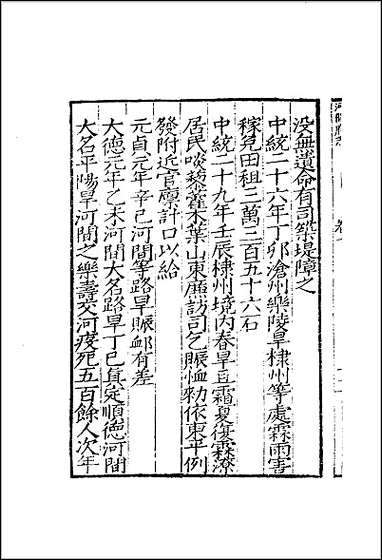 没無遺命有司築堤障之
中統二十六年丁卯滄州樂陵旱棣州等處霖雨害
稼免田租三萬二百五十六石
中統二十九年壬辰棣州境內春旱且霜夏復霖潦
居民啖藜藿木葉山東廉訪司乞賑恤勑依東平例
發附近官廩計口以給
元貞元年辛巳河間等路旱賑邺有差
大德元年乙未河間大名路旱丁巳真定順德河間
大名平陽旱河間之樂壽交河疫死五百餘人次年